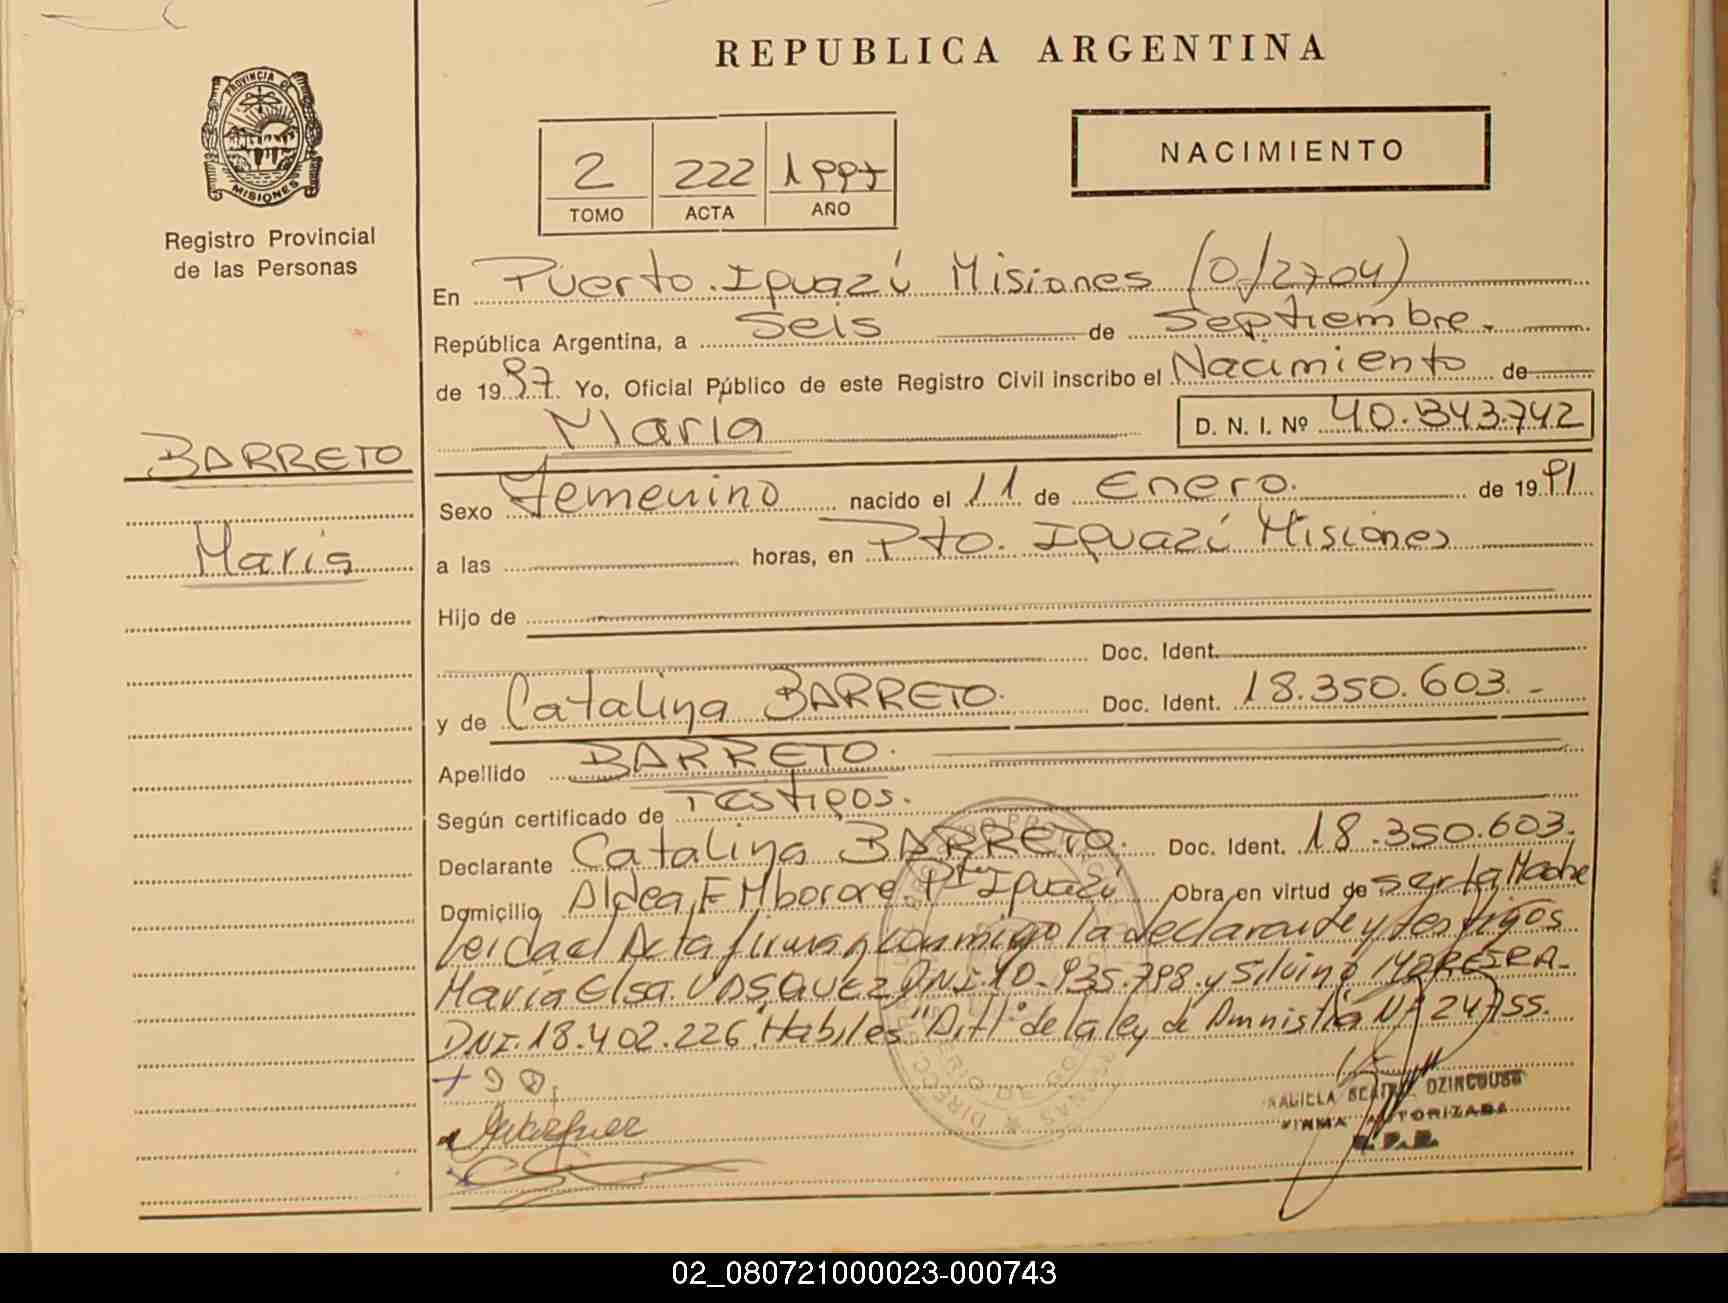 REPUBLICA ARGENTINA
PROVINCIA DE MISIONES
Registro Provincial
de las Personas
2 222 1997
TOMO ACTA AÑO
NACIMIENTO
En Puerto Iguazú Misiones (0/2704)
República Argentina, a Seis de Septiembre.
de 1997. Yo, Oficial Público de este Registro Civil inscribo el Nacimiento de
Maria D. N. I. Nº 40.343.742
BARRETO
Maria
Sexo Femenino nacido el 11 de Enero. de 1991
a las horas, en Pto. Iguazú Misiones
Hijo de
Doc. Ident.
y de Catalina BARRETO. Doc. Ident. 18.350.603.-
Apellido BARRETO.
Según certificado de Testigos.
Declarante Catalina BARRETO. Doc. Ident. 18.350.603.
Domicilio Aldea F Mborore Pto Iguazú Obra en virtud de ser la Madre
leida el Acta firman conmigo la declarante y testigos
Maria Elsa VASQUEZ DNI 10.935.798. y Silvino MOREIRA.
DNI.18.402.226 "Habiles" Art 1° de la ley de Amnistia Nº 24755.
FIRMA AUTORIZADA
02_080721000023-000743